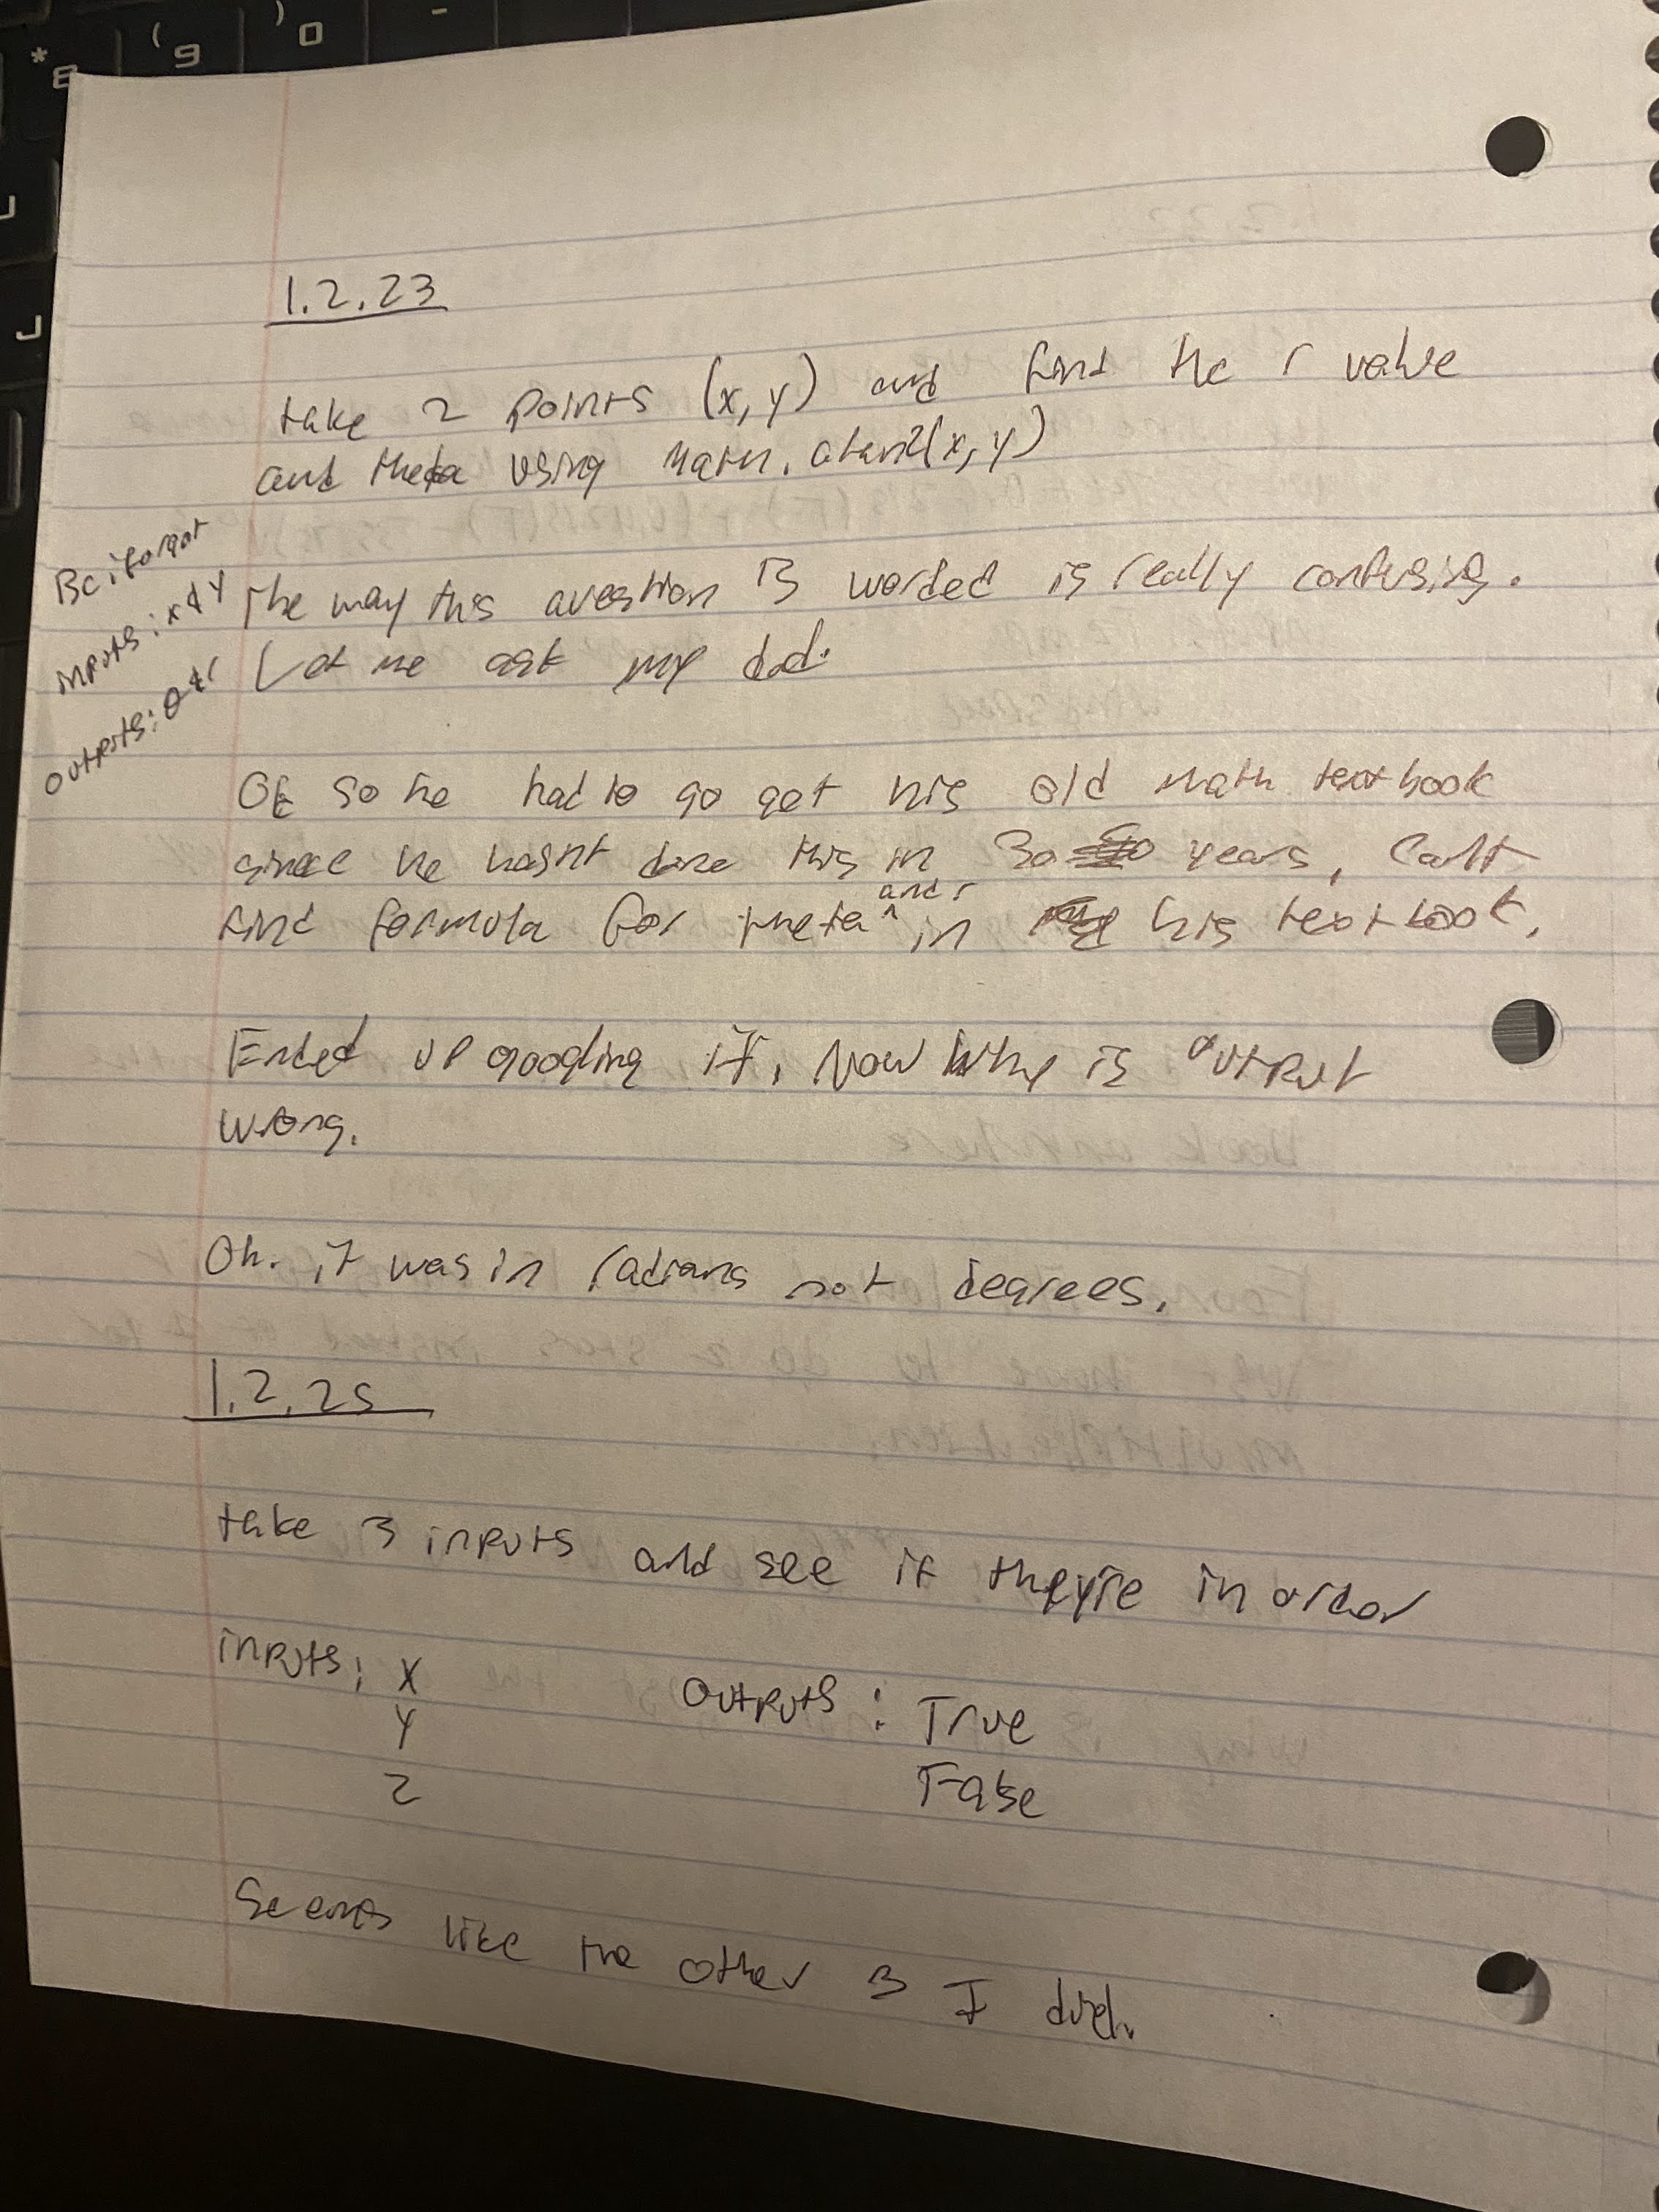 * 8
( 9
) 0
-
1.2.23
take 2 points (x,y) and find the r value
and theta using Math.atan2(x,y)
Bc i forgot
inputs: x & y
outputs: θ & r
The way this question is worded is really confusing.
Let me ask my dad.
Ok so he had to go get his old math textbook
since he hasnt done this in 30 years, Cant
find formula for theta and r in his textbook.
Ended up googling it, Now Why is output
wrong.
Oh. it was in radians not degrees.
1.2.25
take 3 inputs and see if they're in order
inputs: x outputs: True
y False
z
Seems like the other 3 I did.